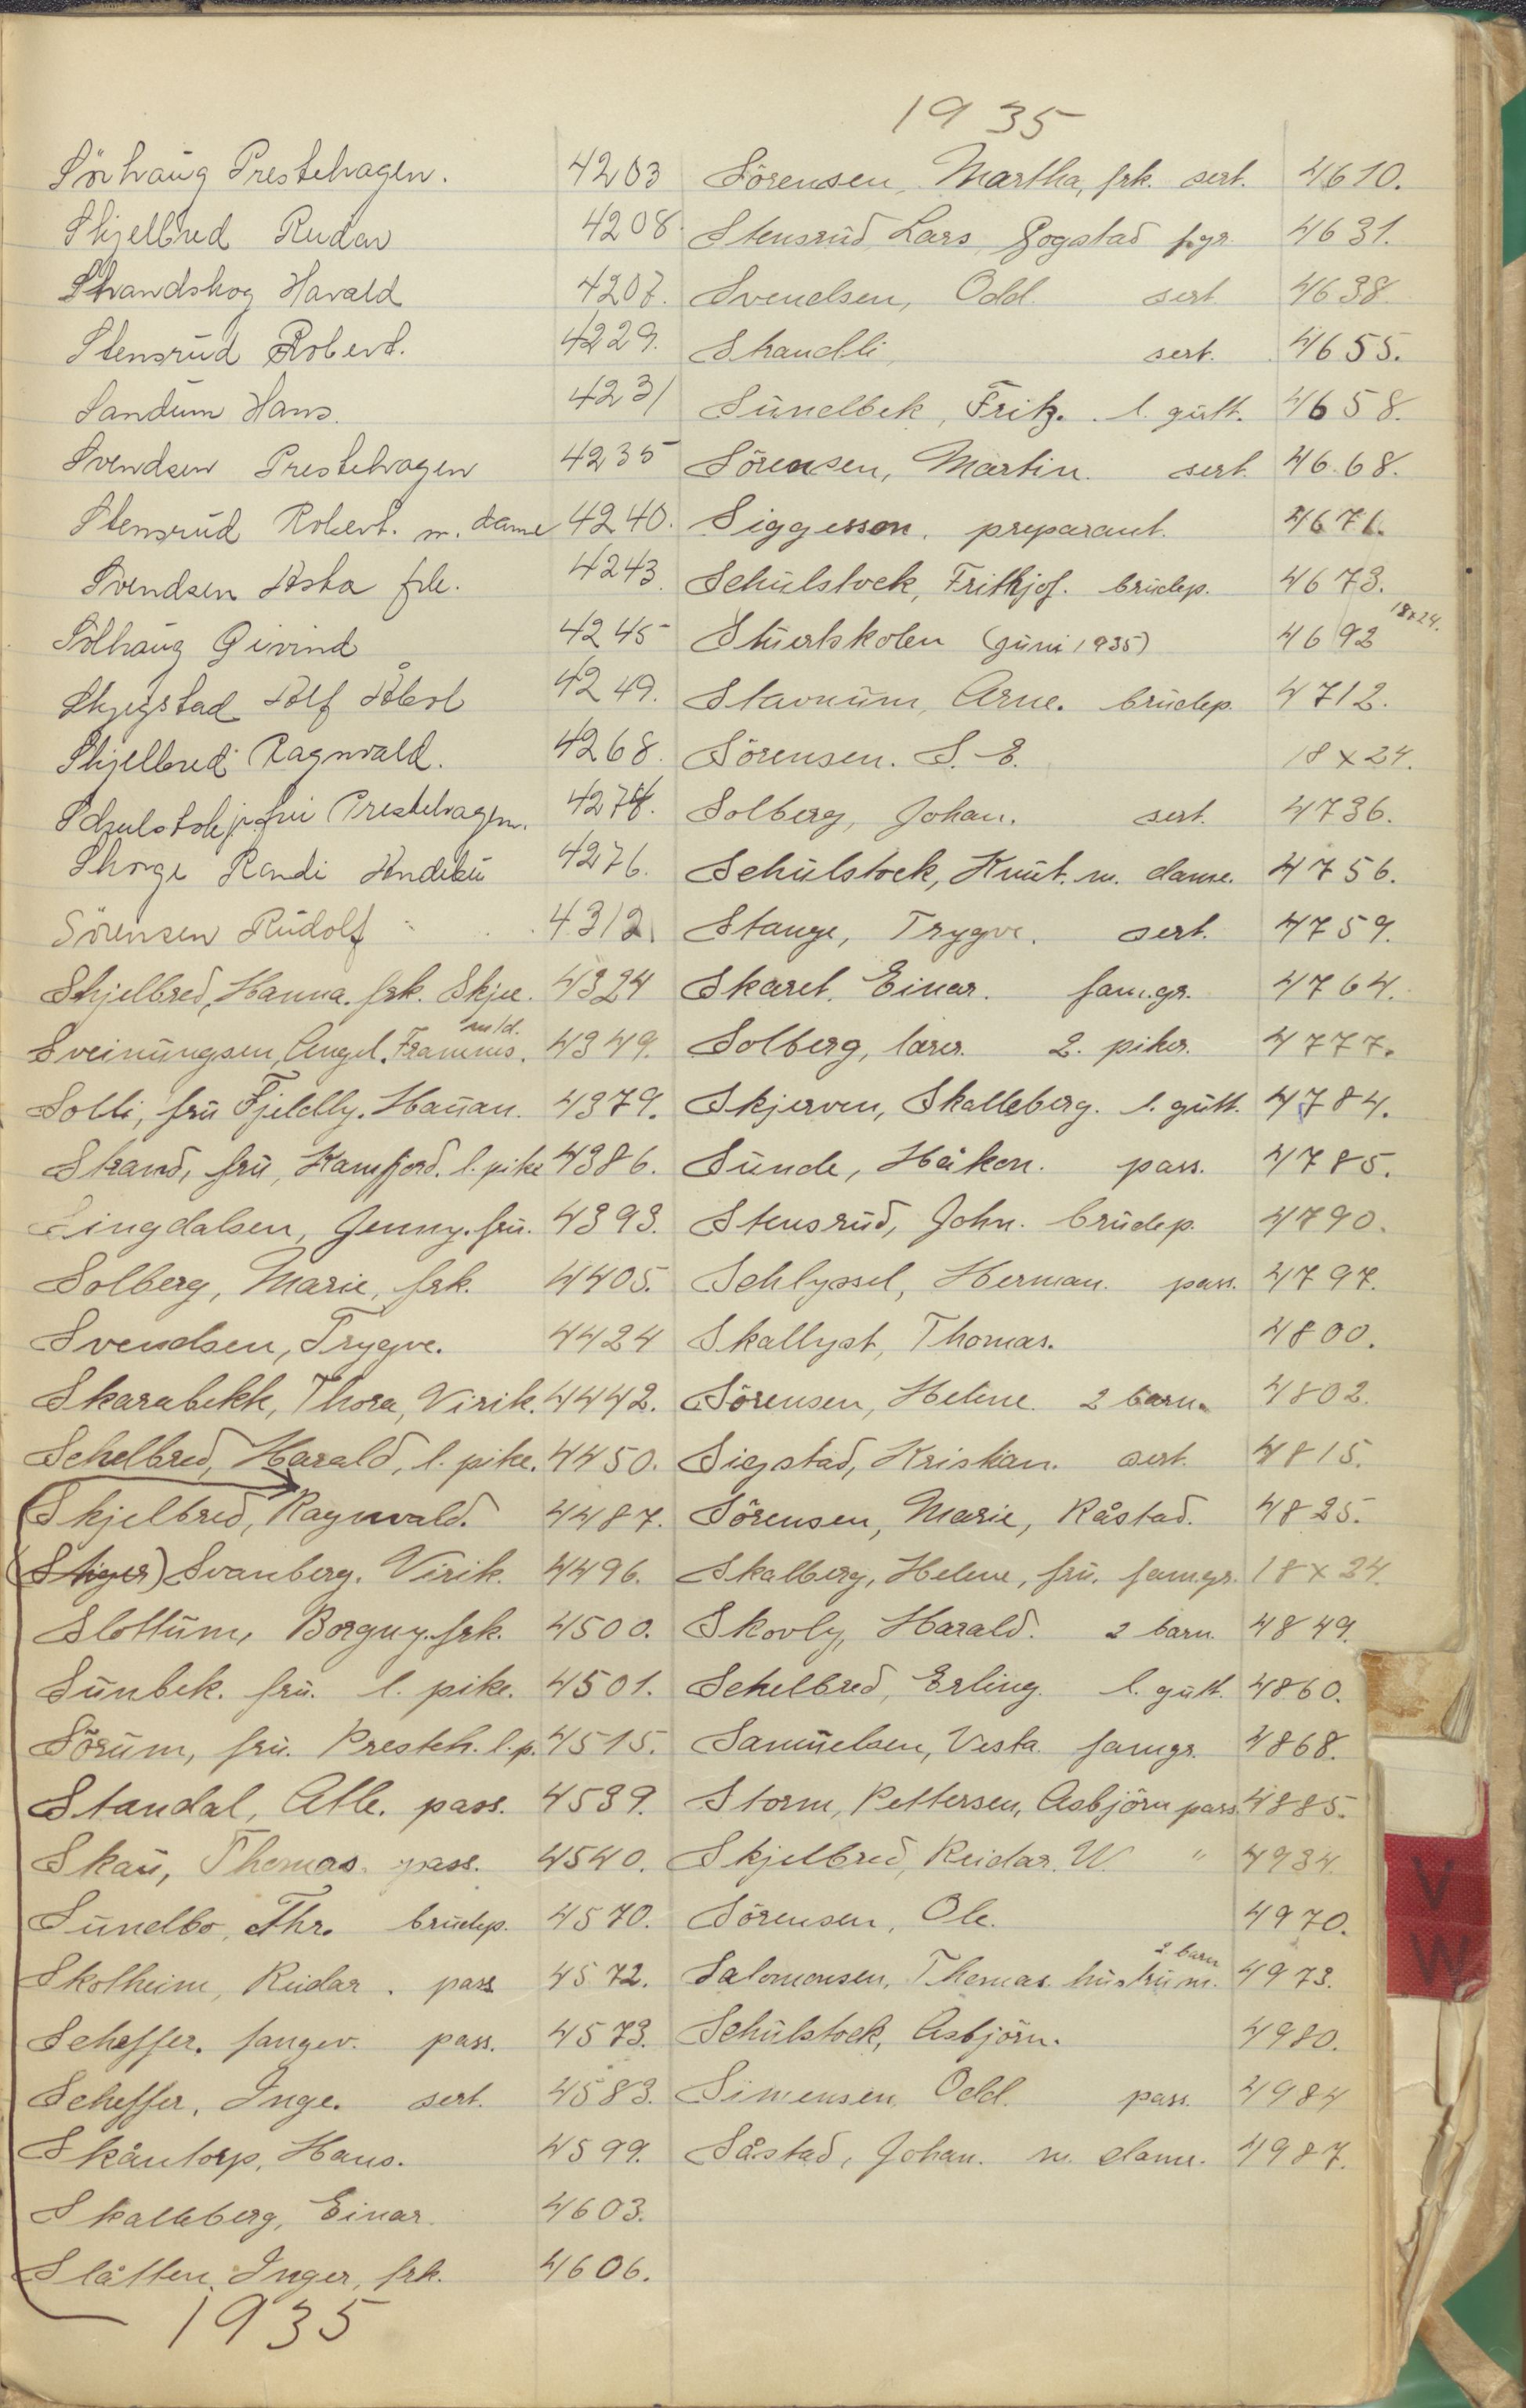 1935
Sörhaug Prestehagen. 4203
Skjelbred Reidar 4208.
Strandskog Harald 4207.
Stensrud Robert. 4229.
Sandum Hans. 4231
Svendsen Prestehagen 4235
Stensrud Robert. m. dame 4240.
Svendsen Asta frk. 4243.
Solhaug Eivind 4245
Skjegstad Rolf Albert 4249.
Skjelbred Ragnvald. 4268.
Prestehagen. 4274.
Skorge Randi Andebu 4276.
Sörensen Rudolf 4312.
Skjelbred, Hanna. frk. Skjee. 4324
m/d.
Sveinungsen, Angel. Framnes. 4349.
Solli, frü Fjeldly. Hauan. 4379.
Strand, frü, Kamfjord. l. pike 4386.
Lingdalsen, Jenny. frü. 4393.
Solberg, Marie, frk. 4405.
Svendsen, Trygve. 4424
Skarabekk, Thora, Virik. 4442.
Schelbred, Harald, l. pike. 4450.
Skjelbred, Ragnvald. 4487.
Svanberg. Virik. 4496.
Slottüm, Borguy. frk. 4500.
Sünbek. frü. l. pike. 4501.
Sörüm, frü. Presteh. l.p. 4515.
Standal, Atle. pass. 4539.
Skaü, Thomas. pass. 4540.
Sündbo, Thr. brüdep. 4570.
Skolheim, Reidar. pass 4572.
Scheffer. fangev. pass. 4573.
Scheffer, Inge. sert. 4583.
Skåntorp, Hans. 4599.
Skalleberg, Einar. 4603.
Slåtten, Inger, frk. 4606.
1935
Sörensen, Martha, frk. sert. 4610.
Stensrüd Lars Gogstad f.gr. 4631.
Svendsen, Odd. sert. 4638
Strandli, sert. 4655.
Sündbek, Fritz. l. gütt. 4658.
Sörensen, Martin. sert. 4668.
Siggesson. preparant. 4671.
Schülstock, Frithjof. brüdep. 4673.
Stüertskolen (Jüni 1935) 4692 18x24.
Stavnüm, Arne. brüdep. 4712.
Sörensen. S. E. 18 x 24.
Solberg, Johan. sert. 4736.
Schülstock, Knüt. m. dame. 4756.
Stange, Trygve. sert. 4759.
Skaret, Einar. fam.gr. 4764.
Solberg, lærer. 2. piker. 4777.
Skjerven, Skalleberg. l. gütt. 4784.
Sünde, Håkon. pass. 4785.
Stensrüd, John. brüdep. 4790.
Schlyssel, Herman. pass. 4797.
Skallyst, Thomas. 4800.
Sörensen, Helene. 2 barn. 4802.
Sigstad, Kristian. sert. 4815.
Sörensen, Marie, Råstad. 4825.
Skalberg, Helene, frü. famgr. 18 x 24.
Skovly, Harald. 2 barn. 4849.
Schelbred, Erling. l. gütt. 4860.
Samüelsen, Vesta. famgr. 4868.
Storm, Pettersen, Asbjörn pass. 4885.
Skjelbred, Reidar. W. " 4934.
Sörensen, Ole. 4970.
2 barn
Salomonsen, Thomas hüstrü m. 4973.
Schülstock, Asbjörn. 4980.
Simensen Odd. pass. 4984
Såstad, Johan. m. dame. 4987.
V
W